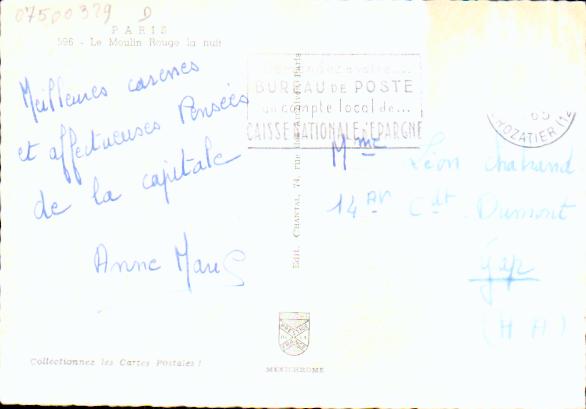 07500379 D
PARIS
596 - Le Moulin Rouge la nuit
Meilleures caresses
et affectueuses Pensées
de la capitale
Anne Marie
Collectionnez les Cartes Postales !
Edit. CHANTAL, 74, rue des Paris
MEXICHROME
BUREAU DE POSTE
un compte local de...
CAISSE NATIONALE D'EPARGNE
ROZATIER (12
Mme Léon Chabrand
14 Av Cdt Dumont
Gap
(H A)